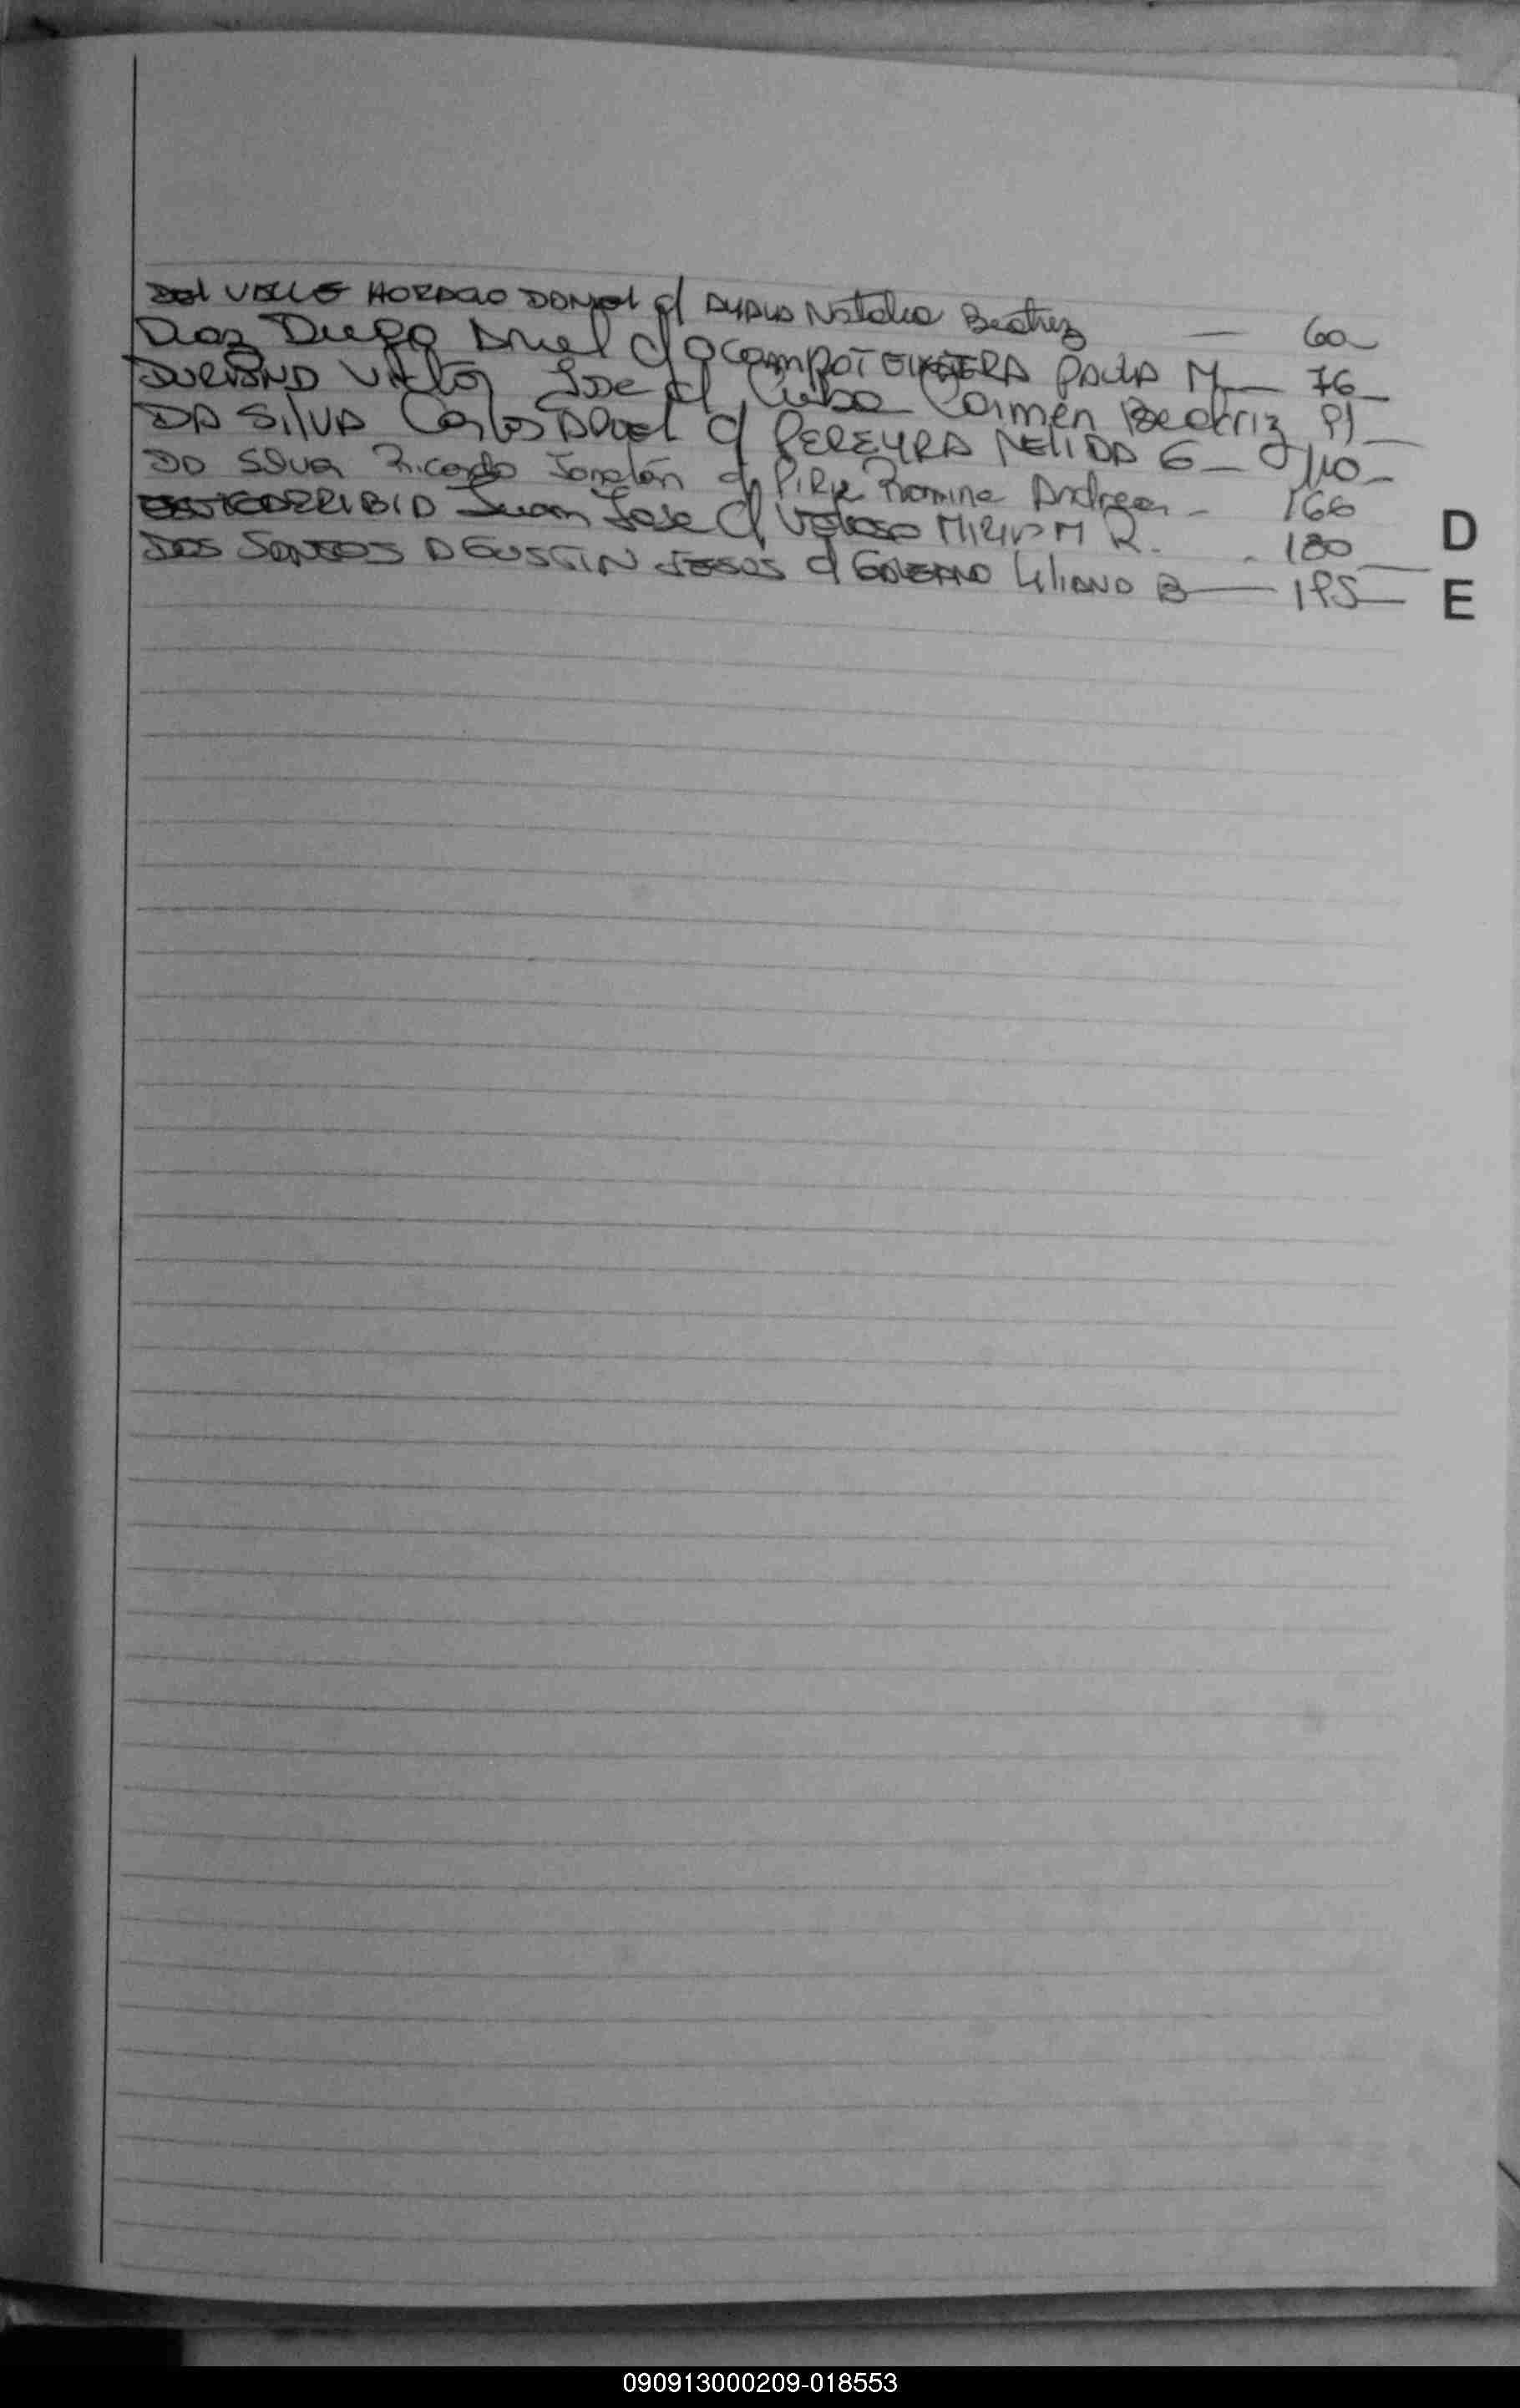 Del VALLE HORACIO DANIEL c/ AYALA Natalia Beatriz — 60
Diaz Diego Ariel c/ OCAMPO TEIXEIRA PAULA M — 76
DURAND Victor Jose c/ Cuba Carmen Beatriz 91
DA SilVA Carlos Abel c/ PEREYRA NELIDA G — 110
Da Silva Ricardo Jonatán c/ Romina Andrea — 166
Juan Jose c/ Veloso MIRIAM R. - 180
D
DOS SANTOS AGUSTIN JESUS c/ LiliANA B — 195
E
090913000209-018553